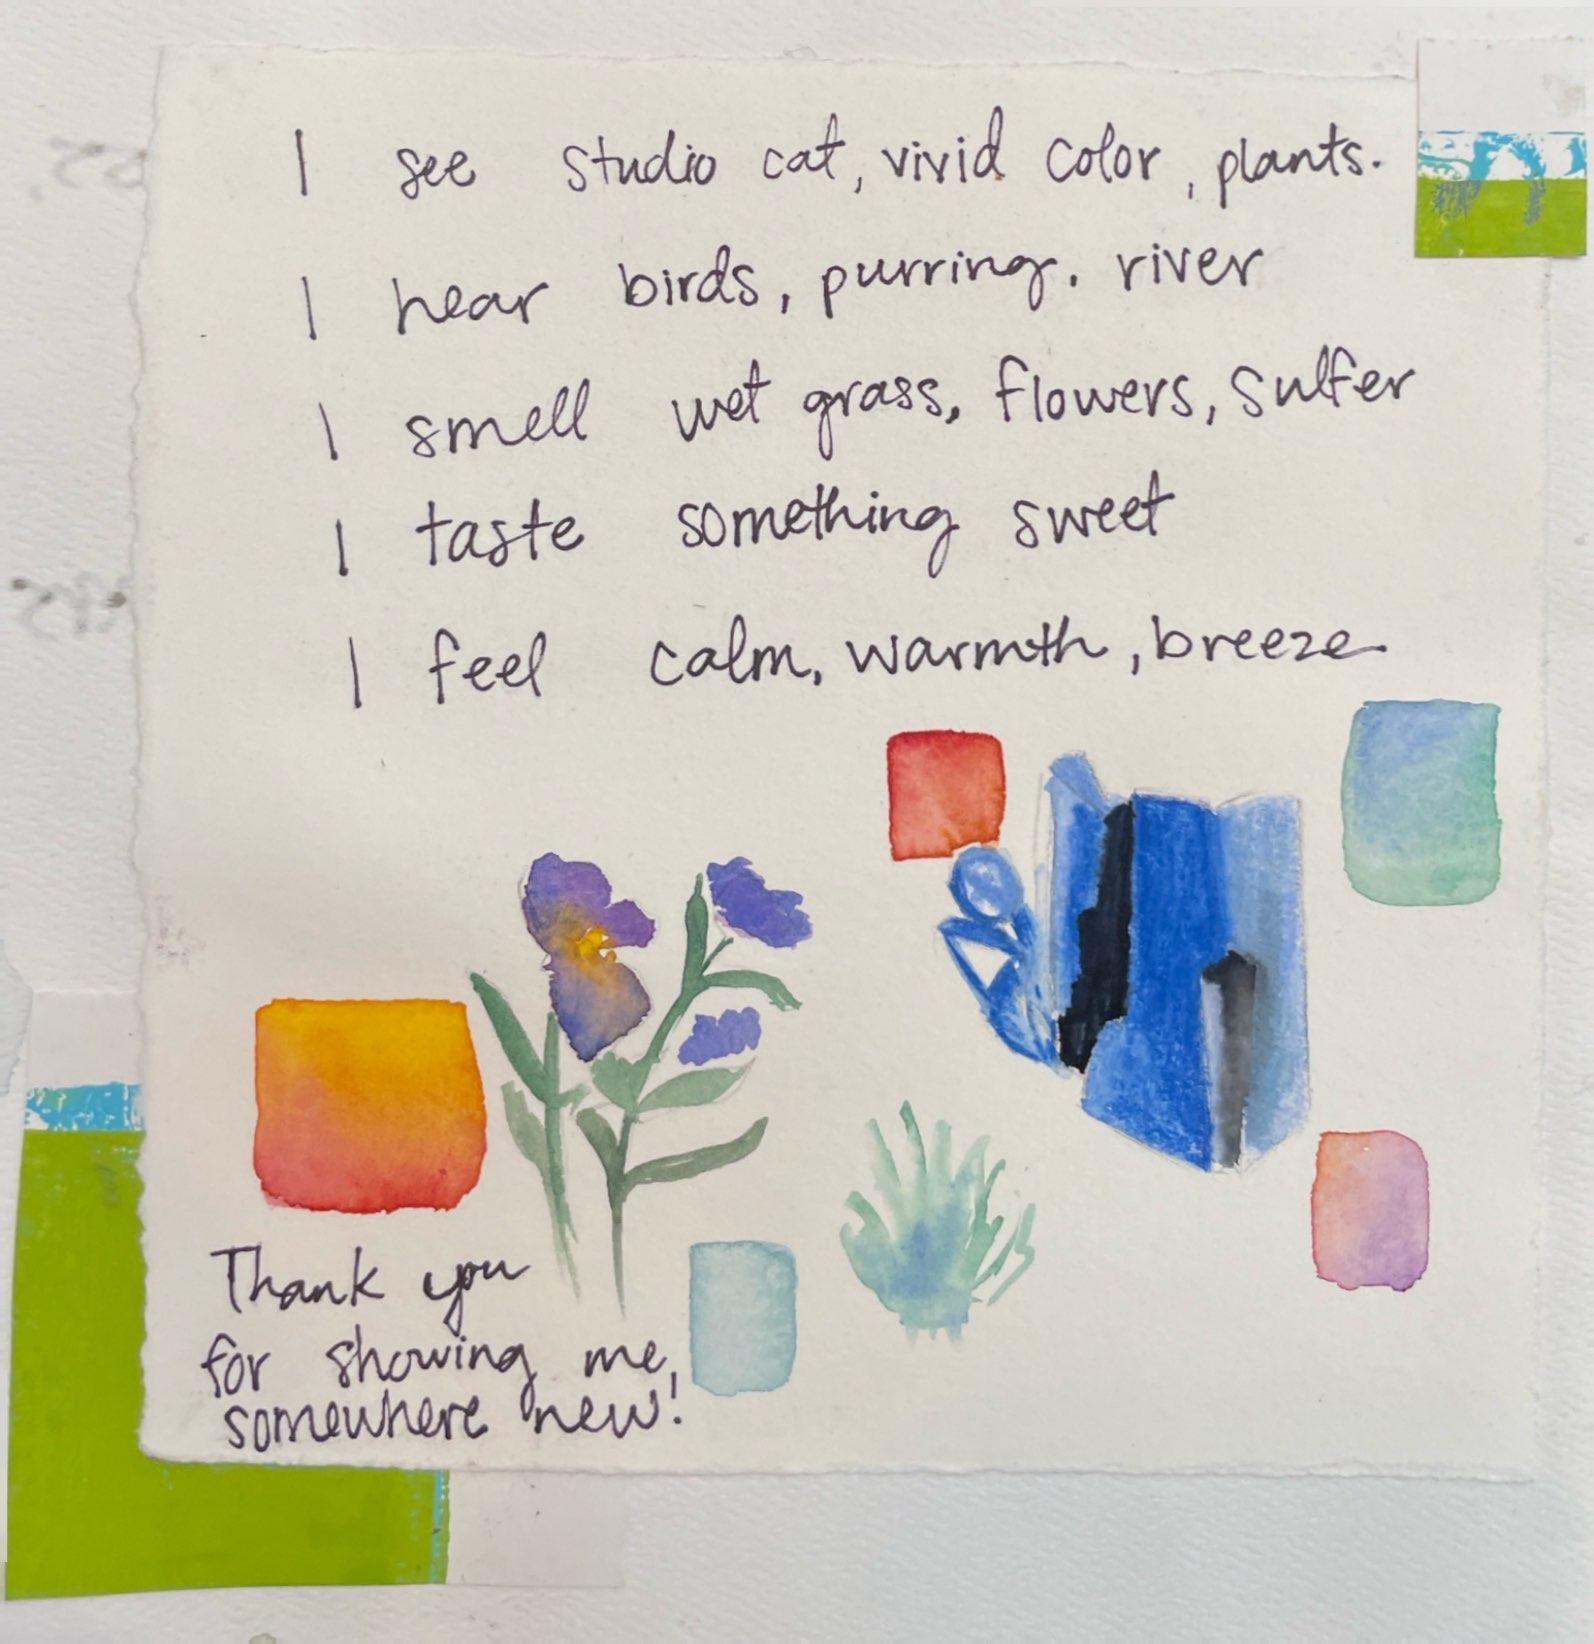 I see studio cat, vivid color, plants.
I hear birds, purring. river
I smell wet grass, flowers, sulfer
I taste something sweet
I feel calm, warmth, breeze
Thank you
for showing me,
somewhere new!